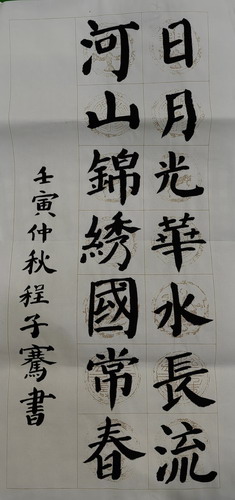 日月光華水長流
河山錦綉國常春
壬寅仲秋程子騫書